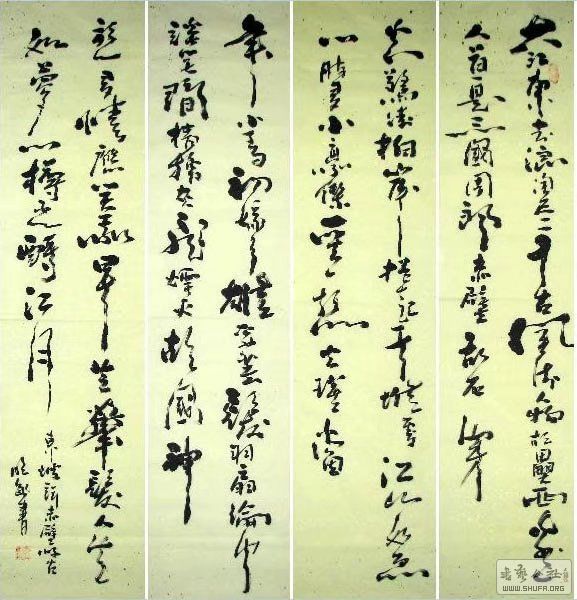 大江東去浪淘盡千古風流人物故壘西邊
人道是三國周郎赤壁亂石穿
空驚濤拍岸捲起千堆雪江山如畫
一時多少豪傑遙想公瑾當
年小喬初嫁了雄姿英發羽扇綸巾
談笑間檣櫓灰飛煙滅故國神
遊多情應笑我早生華髮人生
如夢一樽還酹江月
東坡詞赤壁怀古
書
WWW.SHUFA.ORG